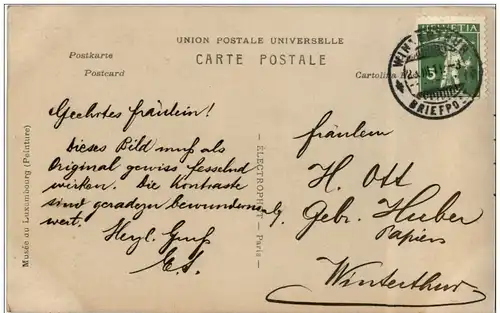 UNION POSTALE UNIVERSELLE
CARTE POSTALE
Postkarte
Postcard
Cartolina
HELVETIA
5
WINTERTHUR
BRIEFPO
Geehrtes Fräulein!
Dieses Bild muß als
Original gewiss fesselnd
wirken. Die Kontraste
sind geradezu bewunderns-
wert.
Herzl. Gruß
E.S.
Fräulein
H. Ott
Gebr. Huber
Papiers
Winterthur
Musée du Luxembourg (Peinture)
ÉLECTROPHOT — Paris —